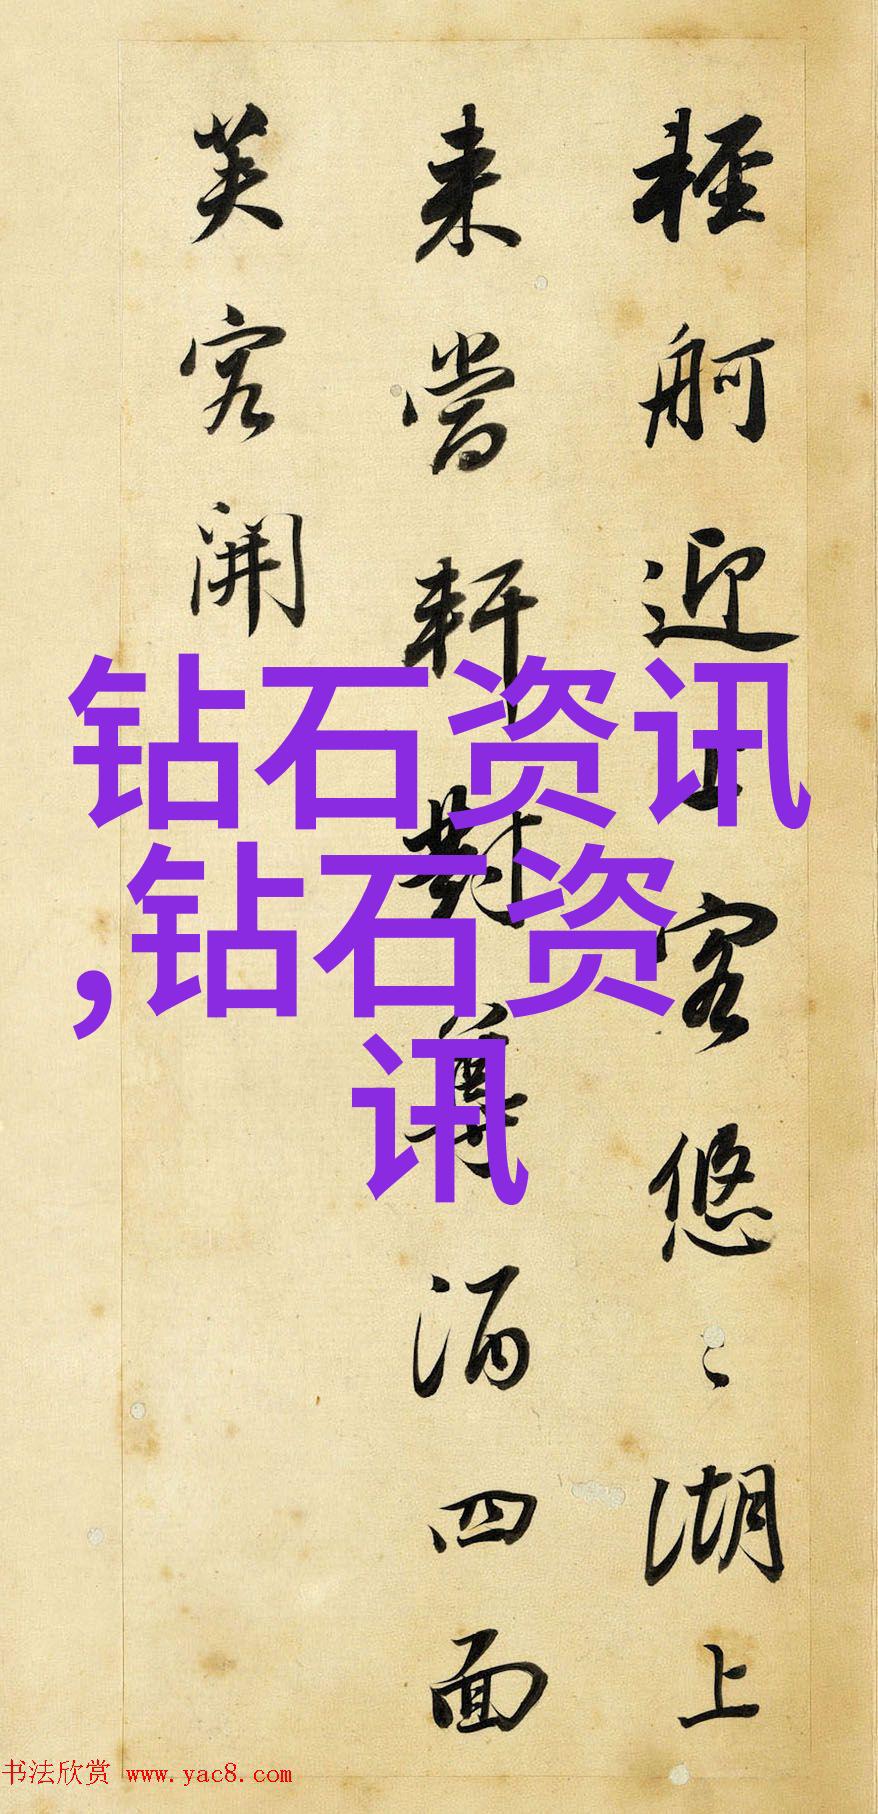 輕舸迎上客悠〻湖上
来當軒對尊酒四面
芙容開
钻石资讯
,钻石资
讯
书法欣赏 www.yac8.com